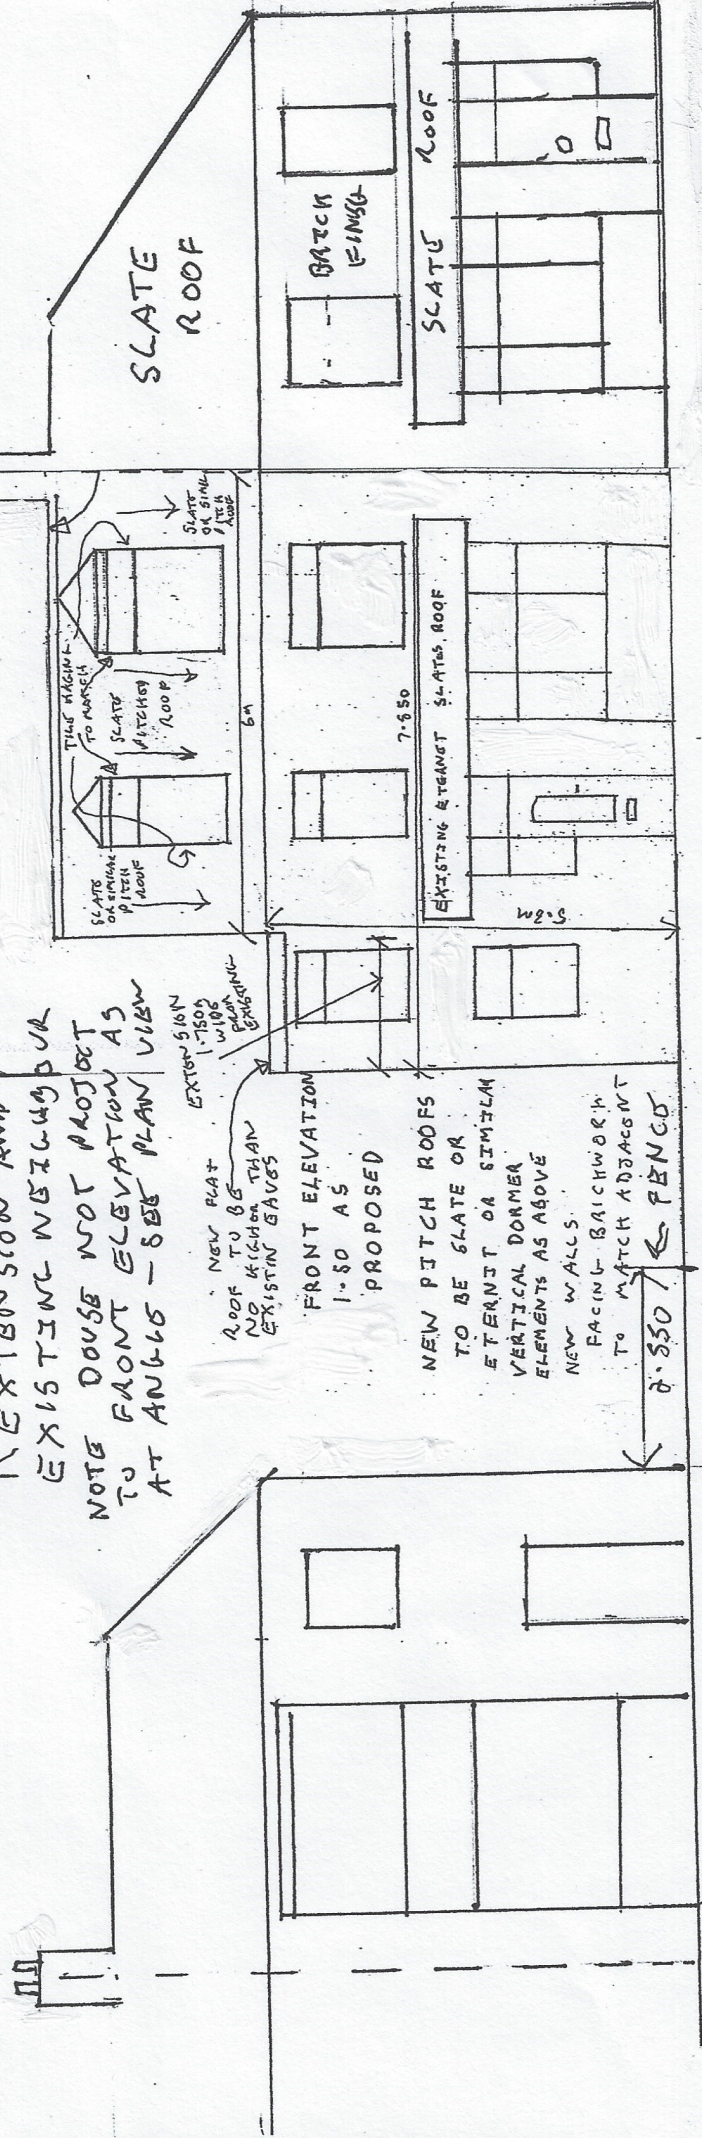 EXTENSION AND
EXISTING NEIGHBOUR
NOTE DOUSE NOT PROJECT
TO FRONT ELEVATION AS
AT ANGLE - SEE PLAN VIEW
EXTENSION
1.750M
WIDE
FROM
EXISTING
NEW FLAT
ROOF TO BE
NO HIGHER THAN
EXISTIN EAVES
FRONT ELEVATION
1:50 AS
PROPOSED
NEW PITCH ROOFS
TO BE SLATE OR
ETERNIT OR SIMILAR
VERTICAL DORMER
ELEMENTS AS ABOVE
NEW WALLS
FACING BRICKWORK
TO MATCH ADJACENT
2.550
FENCE
SLATE
OR SIMILAR
PITCH
ROOF
TILE HAGING
TO MATCH
SLATE
PITCHED
ROOF
SLATE
OR SIML
PITCH
ROOF
6M
7.850
EXISTING ETERNET SLATES ROOF
5.2M
SLATE
ROOF
BRICK
FINSG
SLATE ROOF